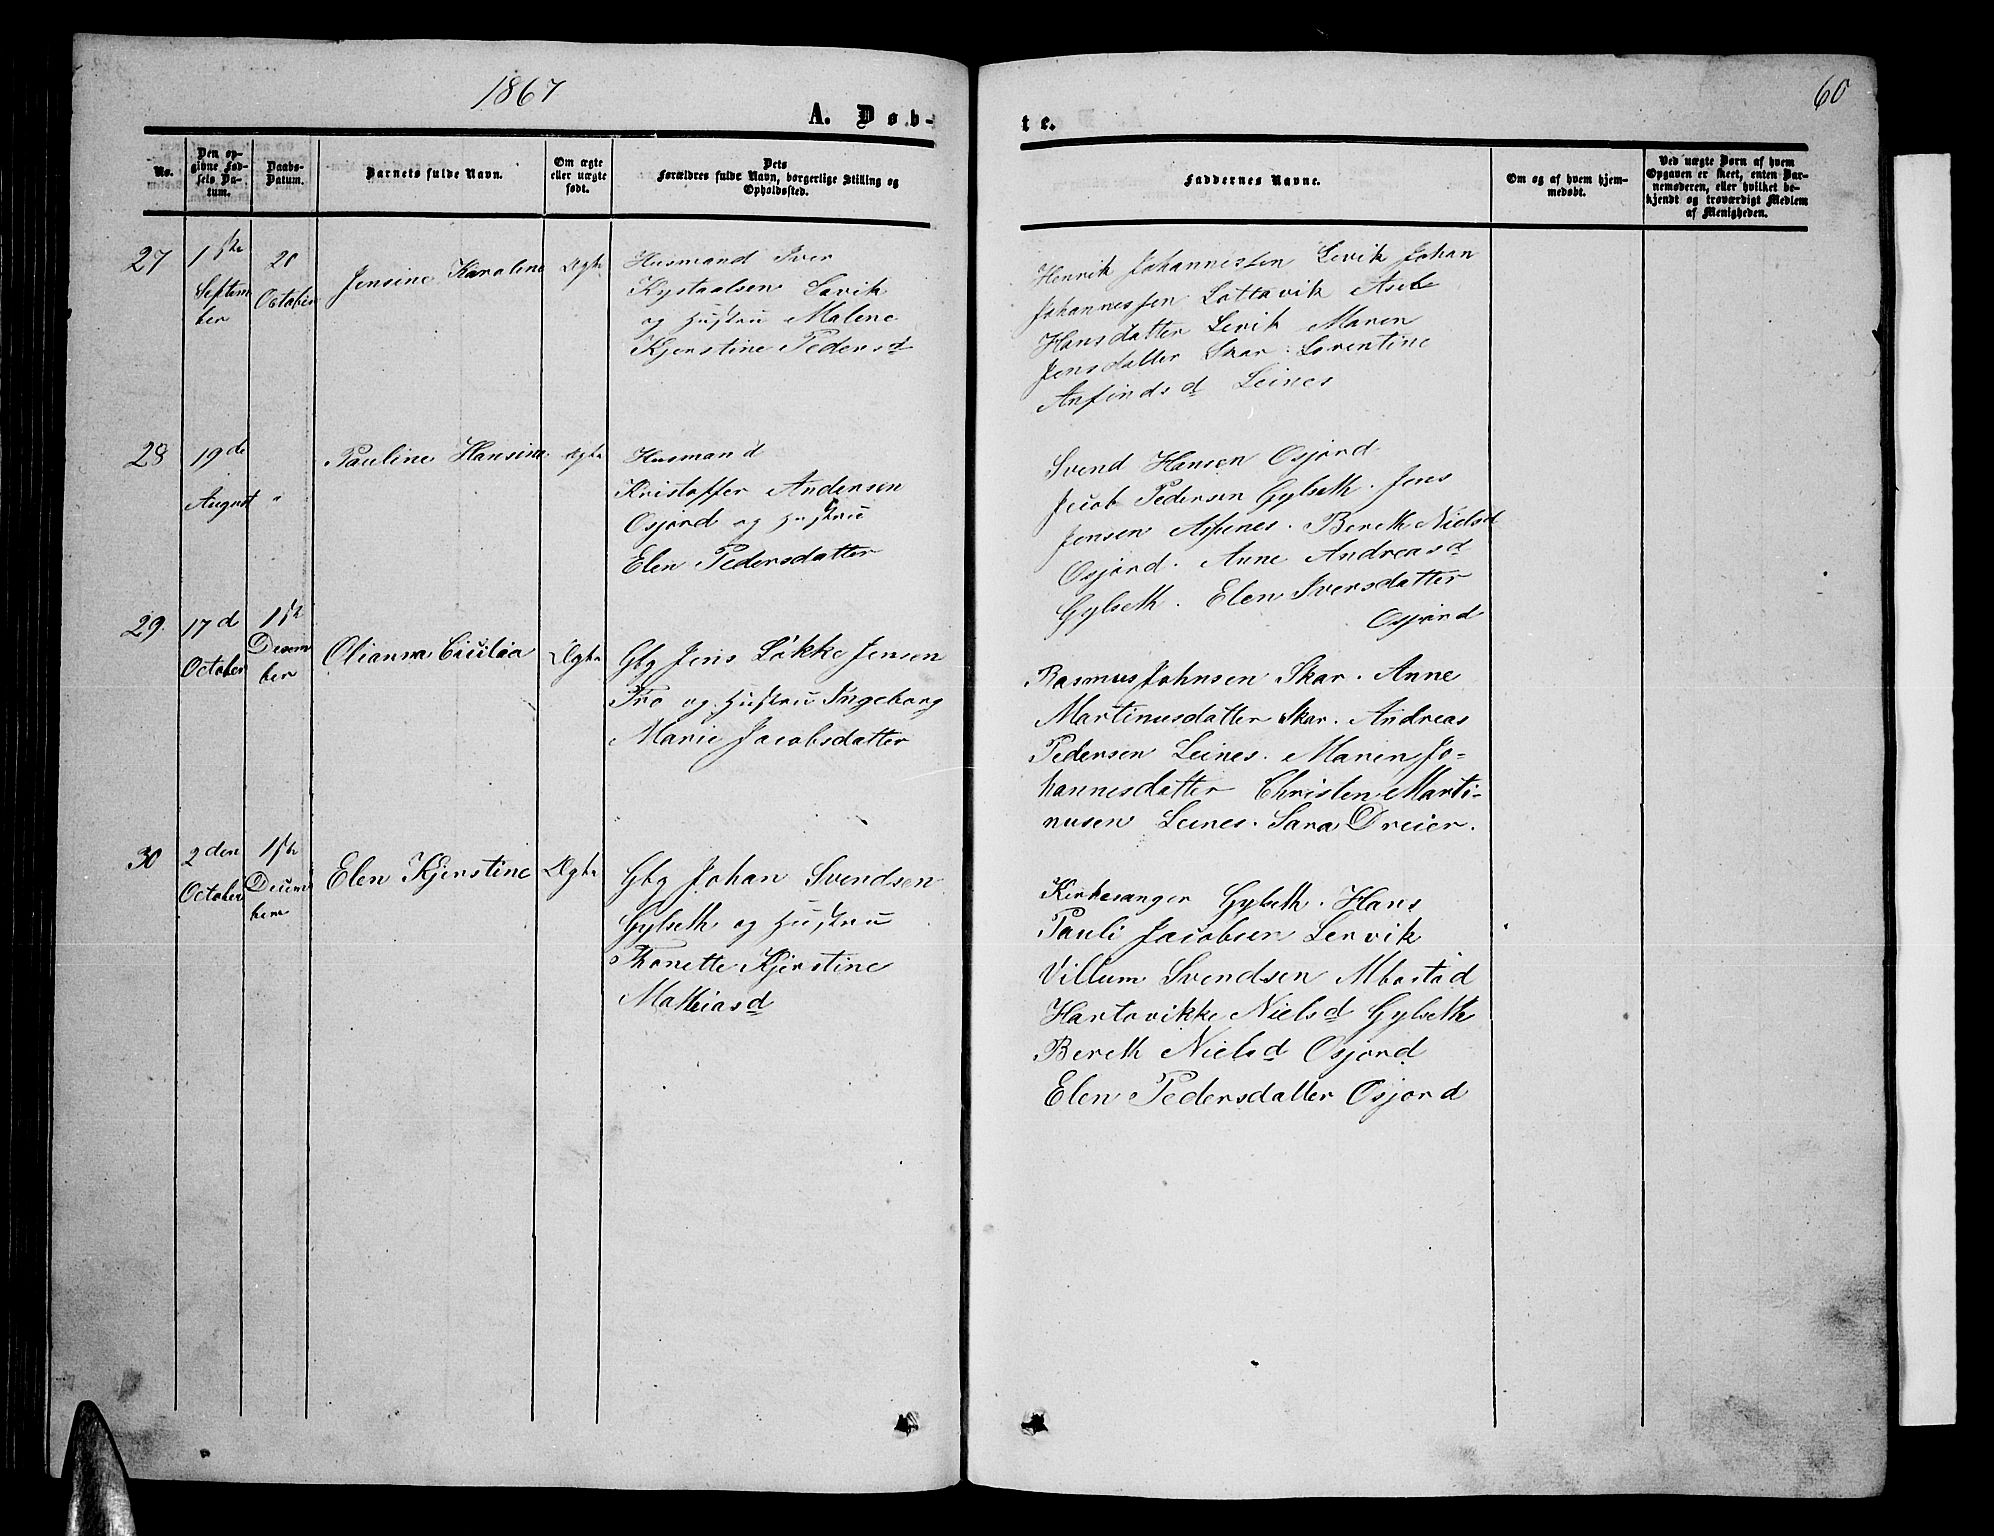 1867
60
A. Døb-
te.
No.
Den op-
givne Fød-
sels Da-
tum.
Daabs-
Datum.
Barnets fulde Navn.
Om ægte
eller uægte
født.
Dets
Forældres fulde Navn, borgerlige Stilling og
Opholdssted.
Faddernes Navne.
Om og af hvem hjem-
medøbt.
Ved uægte Børn af hvem
Opgaven er skeet, enten Bar-
nemoderen, eller hvilket be-
kjendt og troværdigt Medlem
af Menigheden.
27
1ste
Septem
ber
20
October
Jensine Karoline
Ægte
Husmand Iver
Kystaalsen Lavik
og Hustru Malene
Kjerstine Pedersd
Henrik Johannessen Levik Johan
Johannessen Løttavik
Hansdatter Levik Maren
Jensdatter Skar. Lorentine
Anfindsd Leines
28
19de
August
"
Pauline Hansine
Ægte
Husmand
Kristoffer Andersen
Osjord og Hustru
Elen Pedersdatter
Svend Hansen Osjord
Jacob Pedersen Gylseth. Jens
Jensen Aspenes. Bereth Nielsd
Osjord. Anne Andreasd
Gylseth. Elen Iversdatter
Osjord
29.
17d
October
1ste
Decem
ber
Olianna Cicilia
Ægte
Gbg Jens Løkke Jensen
Fro og Hustru Ingeborg
Marie Jacobsdatter
Rasmus Johnsen Skar. Anne
Martinusdatter Skar. Andreas
Pedersen Leines. Maren Jo-
hannesdatter Christen Marti-
nusen Leines. Sara Dreier.
30
2den
October
1ste
Decem
ber
Elen Kjerstine
Ægte
Gbg Johan Svendsen
Gylseth og Hustru
Thonette Kjerstine
Mathiasd
Kirkesanger Gylseth. Hans
Pauli Jacobsen Lervik
Villum Svendsen Mbostad
Hartvikke Nielsd Gylseth
Bereth Nielsd Osjord
Elen Pedersdatter Osjord